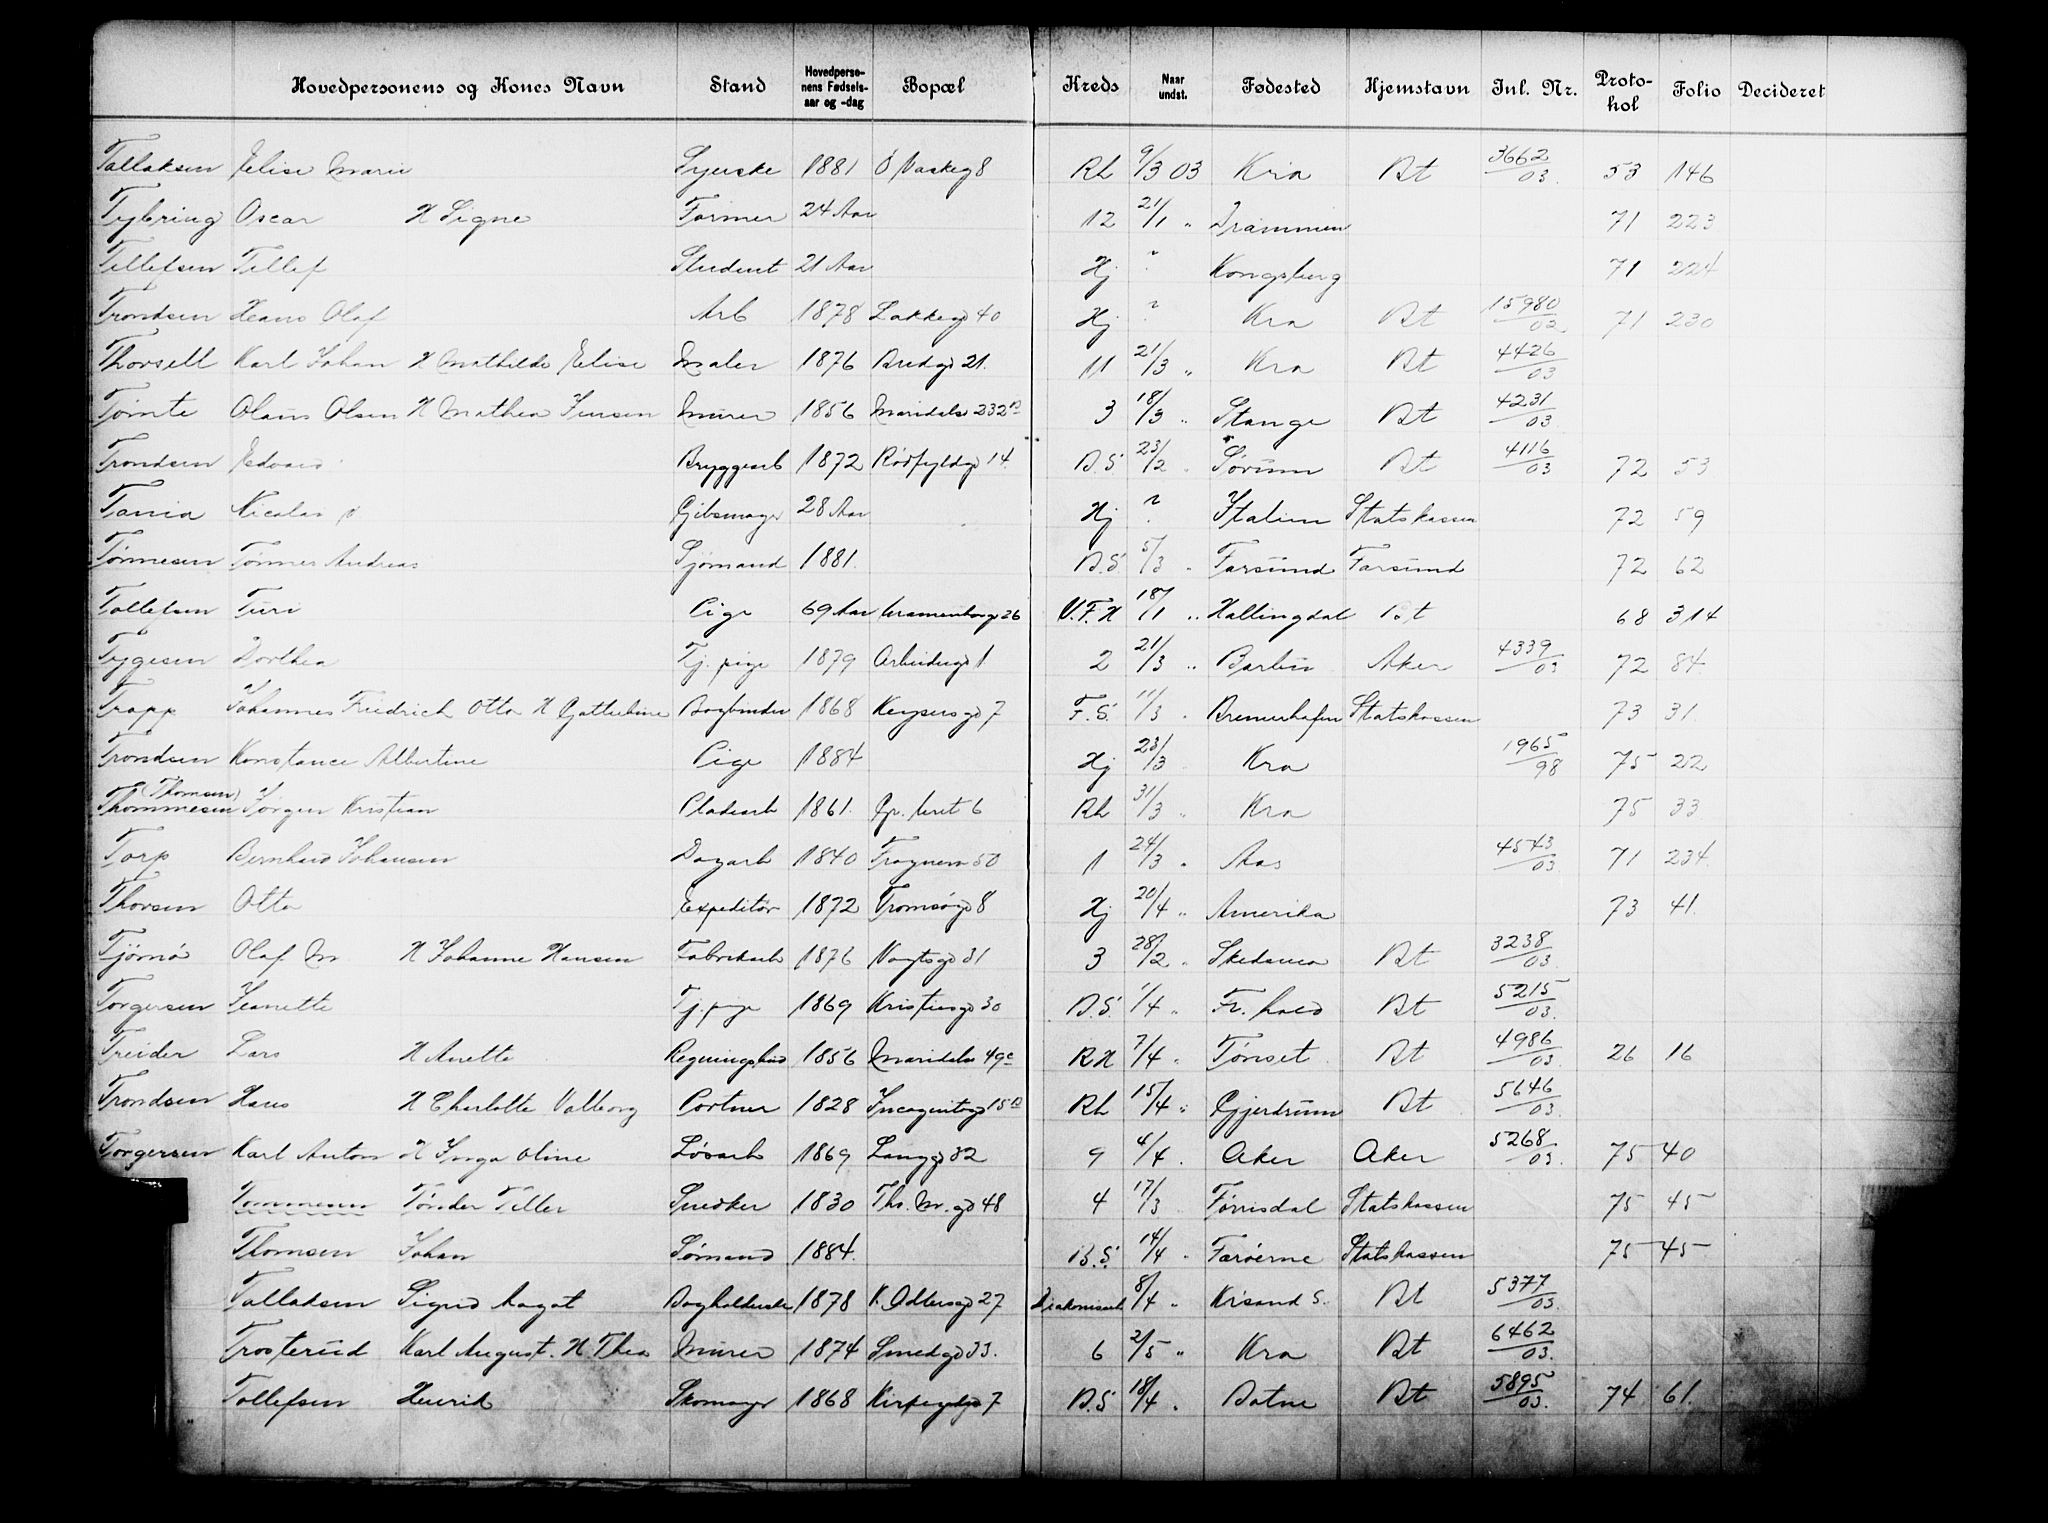 Hovedpersonens og Kones Navn Stand Hovedperso-nens Fødsels-aar og -dag Bopæl Kreds Naar undst. Fødested Hjemstavn Jnl. Nr. Proto-kol Folio Decideret
Tallaksen Elise Marie Syerske 1881 Ö Vaskeg 8 Rh 9/3 03 Kria Bt 3662/03. 53 146
Tybring Oscar H Signe Former 24 Aar 12 21/1 " Drammen 71 223
Tellefsen Tellef Student 21 Aar Hj ? Kongsberg 71 224
Trondsen Hans Olaf Arb 1878 Lakkegd 40 Hj ? Kra Bt 15980/02 71 230
Thorsell Karl Johan H Mathilde Elise Maler 1876 Bredgd 21. 11 21/3 " Kra Bt 4426/03
Tømte Olaus Olsen H Mathea Jensen Murer 1856 Maridalsv 232 B 3 18/3 " Stange Bt 4231/03
Trondsen Edvard Bryggearb 1872 Rødfyldgd 14. B.S. 23/2 " Sørum Bt 4116/03 72 53
Tania Nicolai Gibsmager 28 Aar Hj ? Italien Statskassen 72 59
Tønnesen Tønnes Andreas Sjömand 1881. B.S. 5/3 " Farsund Farsund 72 62
Tollefsen Turi Pige 69 Aar 26 V.F.H 18/1 " Hallingdal Bt 68 314
Tygesen Dorthea Tj. pige 1879 Arbeidergd 1 2 21/3 " Berlin Aker 4339/03 72 84.
Trapp Johannes Friedrich Otto H Bogbinder 1868 Keysersgd 7 F.S. 11/3 " Bremerhafen Statskassen 73 31.
Trondsen Konstance Albertine Pige 1884 Hj 23/3 Kra 1965/98 75 22
(Thomsen)
Thommesen Jörgen Kristian Pladearb 1861. 6 Rh 31/3 " Kra 75 33
Torp Bernhard Johansen Dagarb 1840 Frognerv 50 1 24/3 " Aas 4543/03 71 234.
Thorsen Otto Expeditör 1872 Tromsögd 8 Hj 20/4 " Amerika 73 41.
Tjömö Olaf M. H Johanne Hansen Fabrikarb 1876 Vogtsgd 31 3 28/2 " Skedsmo Bt 3238/03
Torgersen Jeanette Tj. pige 1869 Kristiesgd 30 B.S. 1/4 " Fr. hald Bt 5215/03.
Treider Lars H Anette Regningsbud 1856 Maridalsv 49c RH 7/4 " Tönset Bt 4986/03 26 16
Trondsen Hans H Charlotte Valborg Portner 1828 Incognitogd 15 B Rh 15/4 " Gjerdrum Bt 5646/03.
Torgersen Karl Anton H Inga Oline Løsarb 1869 Langgd 32 9 4/4 . Aker Aker 5268/03. 75 40
Tommesen Tønder Teller Snedker 1830 Th. M. gd 48 4 17/3 Statskassen 75 45
Thomsen Johan Sømand 1884. B.S. 14/4 " Færøerne Statskassen 75 45
Tallaksen Sigrid Aagot Bogholderske 1878 K. Odlersgd 27 8/4 " Krsand S. Bt 5377/03.
Trosterud Karl August. H. Thea Murer 1874 Smedgd 33. 6 2/5 " Kra Bt 6462/03.
Tollefsen Henrik Skomager 1868 7 B.S 18/4 " Botne Bt 5895/03. 74 61.